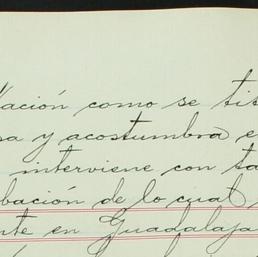 lación como se tit
sa y acostumbra e
interviene con ta
bación de lo cual
nte en Guadalaja